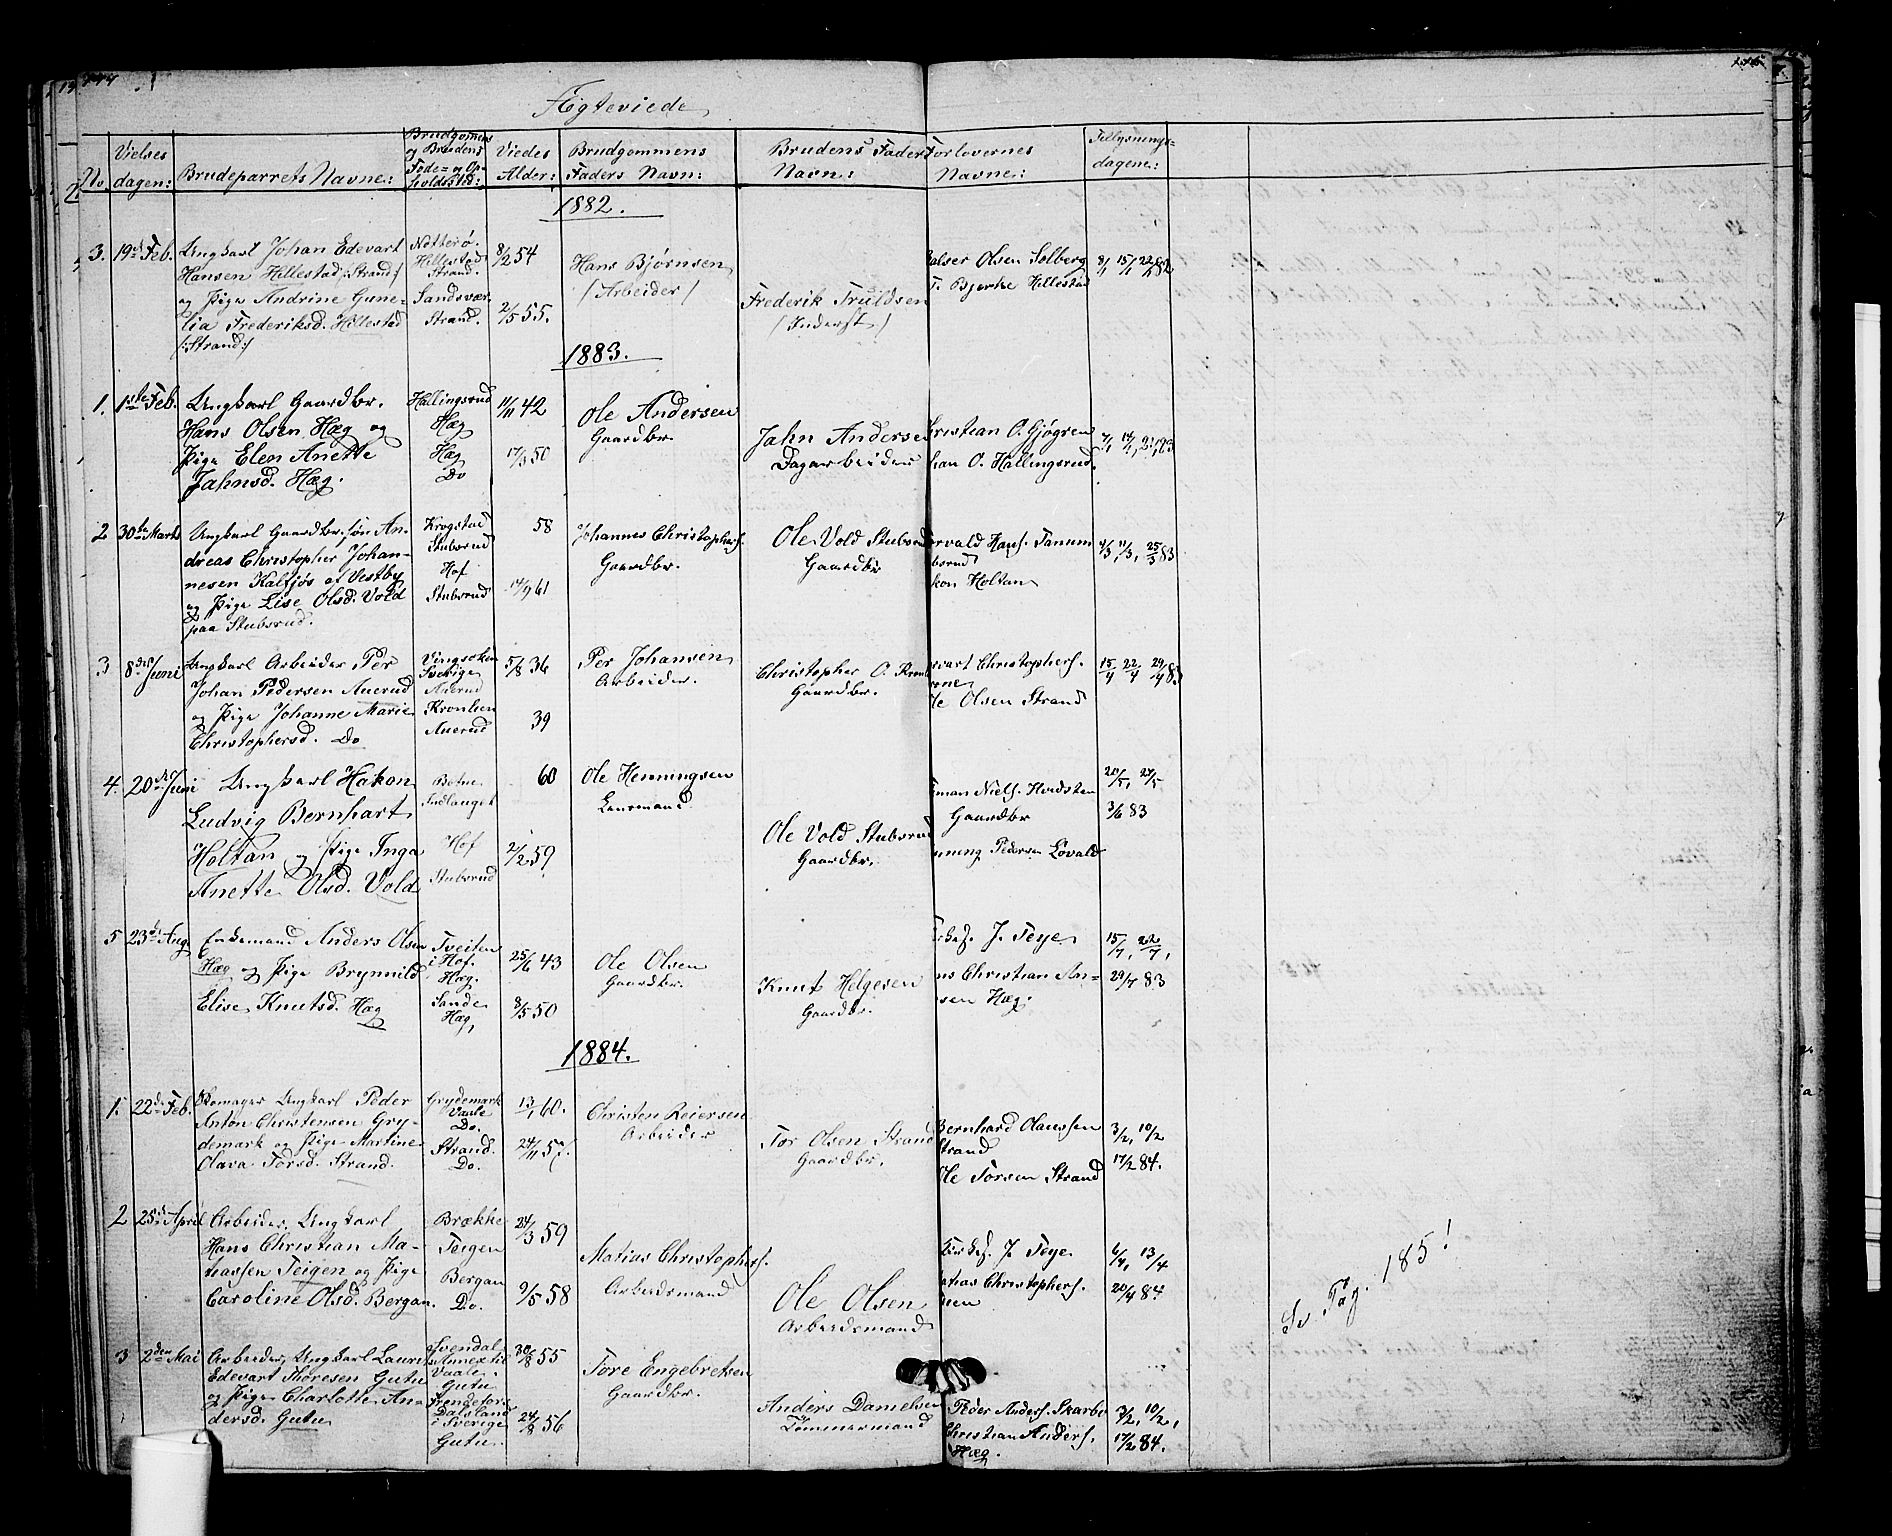 Ægteviede
No
Vielses
dagen:
Brudeparrets Navne:
Brudgomens
og Brudens
Føde= og Op=
holdsted:
Viedes
Alder:
Brudgommens
Faders Navn:
Brudens Fader
Navn:
Forlovernes
Navne:
Tillysnings=
dagene:
1882.
3. 19de Feb.
Ungkarl Johan Edevart
Hansen Hillestad /:Strand:/
og Pige Andrine Gune=
lia Frederiksd. Hillestad
/:Strand:/
Nøtterø.
Hillestad
Strand.
Sandsvær
Strand.
8/2 54
2/5 55.
Hans Bjørnsen
/Arbeider/
Frederik Truldsen
/Inderst/
Olsen Solberg
Bjerke Hillestad
8/1 15/1 22/1 82
1883.
1. 1ste Feb.
Ungkarl Gaardbr.
Hans Olsen Hæg og
Pige Elen Anette
Jahnsd. Hæg.
Hallingsrud
Hæg
Hæg
Do
11/11 42
17/3 50
Ole Andersen
Gaardbr.
Jahn Anderse
Dagarbeider
hristian O. Gjøgren
han O. Hallingsrud.
7/1, 14/1, 21/1 83
2 30te Marts
Ungkarl Gaardbr. søn An=
dreas Christopher Johan=
nesen Kalfjøs af Vestby
og Pige Lise Olsd. Vold
paa Stubsrud.
Krogstad
Stubsrud
Hof
Stubsrud
58
14/9 61
Johannes Christophers.
Gaardbr.
Ole Vold Stubsrud
Gaardbr
orvald Hans. Fanum
bsrud
kon Holtan
4/3, 11/3, 25/3 83
3 8de Juni
Ungkarl Arbeider Per
Johan Pedersen Auerud
og Pige Johanne Marie
Christophersd. Do
Vingåker
Sverige
Auerud
Kronlien
Auerud
5/8 36
39
Per Johansen
Arbeider.
Christopher O. Kronl
Gaardbr.
vart Christophers.
le Olsen Strand
15/4 22/4 29/4 83
4. 20de Juni
Ungkarl Hakon
Ludvig Bernhart
Holtan og Pige Inga
Anette Olsd. Vold
Botne
Indlaget
Hof
Stubsrud
60
2/2 59
Ole Henningsen
Lensmand
Ole Vold Stubsrud
Gaardbr.
man Niels. Hvidsten
Gaardbr
nning Pedersen Løvald
20/5, 27/5
3/6 83
5 23de Aug
Enkemand Anders Olsen
Hæg og Pige Brynnild
Elise Knutsd. Hæg
Tveiten
i Hof.
Hæg.
Sande
Hæg,
25/6 43
8/5 50
Ole Olsen
Gaardbr.
Knut Helgesen
Gaardbr.
J. Teye
ns Christian An=
sen Hæg.
15/7, 22/7,
29/7 83
1884.
1. 22de Feb.
Skomager Ungkarl Peder
Anton Christensen Gry=
demark og Pige Martine
Olava Torsd. Strand.
Grydemark
Vaale
Do.
Strand.
Do.
13/1 60.
24/11 57.
Christen Reiersen
Arbeider
Tor Olsen Strand
Gaardbr.
Bernhard Olaussen
Strand
Ole Torsen Strand
3/2, 10/2
17/2 84.
2 25de April
Arbeider, Ungkarl
Hans Christian Ma=
tiassen Teigen og Pige
Caroline Olsd. Bergan.
Brække
Teigen
Bergan
Do.
24/3 59
9/5 58
Matias Christophers.
Arbeidsmand
Ole Olsen
Arbeidsmand
Kirkes. J. Teye.
atias Christophers.
6/4, 13/4
20/4 84
Se Pag. 185!
3 2den Mai
Arbeider, Ungkarl Laurits
Edevart Thoresen Gutu
og Pige Charlotte An=
dersd. Gutu
Svendal
Annex til
Vaale.
Gutu
Dalsland
i Sverige
Gutu.
30/8 55
24/8 56
Tore Engebretsen
Gaardbr.
Anders Danielsen
Tømmermand
Peder Anders. Skarbo
Christian Anders.
Hæg.
3/2, 10/2,
17/2 84.